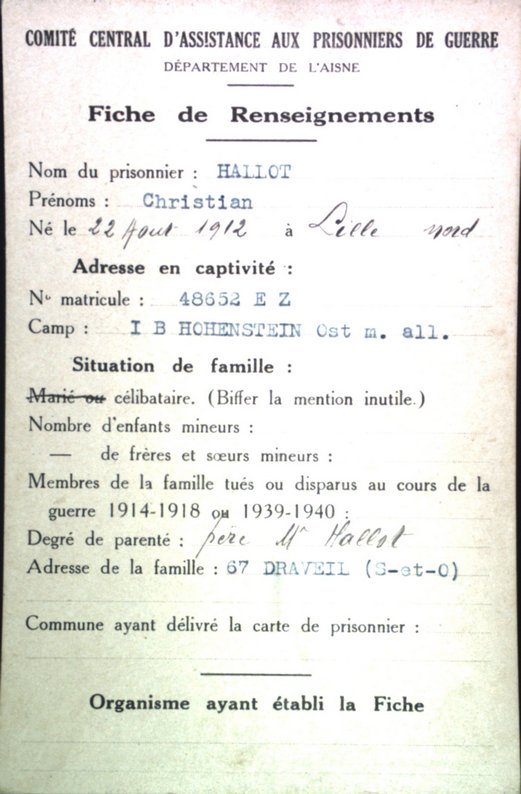 COMITÉ CENTRAL D'ASSISTANCE AUX PRISONNIERS DE GUERRE
DÉPARTEMENT DE L'AISNE
Fiche de Renseignements
Nom du prisonnier : HALLOT
Prénoms : Christian
Né le 22 Aout 1912 à Lille nord
Adresse en captivité :
No matricule : 48652 E Z
Camp : I B HOHENSTEIN Ost m. all.
Situation de famille :
Marié ou célibataire. (Biffer la mention inutile.)
Nombre d'enfants mineurs :
— de frères et sœurs mineurs :
Membres de la famille tués ou disparus au cours de la
guerre 1914-1918 ou 1939-1940 :
Degré de parenté : père Mr Hallot
Adresse de la famille : 67 DRAVEIL (S-et-O)
Commune ayant délivré la carte de prisonnier :
Organisme ayant établi la Fiche